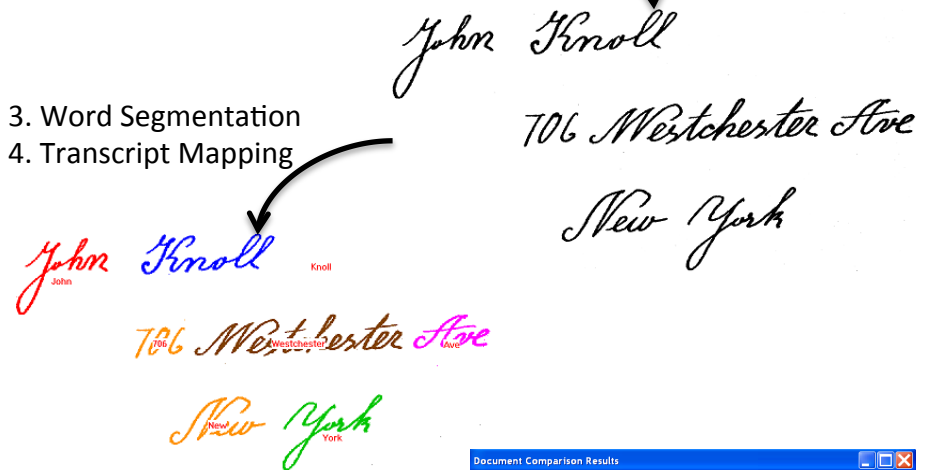 John Knoll
706 Westchester Ave
New York
3. Word Segmentation
4. Transcript Mapping
John Knoll
John
Knoll
706 Westchester Ave
706
Westchester
Ave
New York
New
York
Document Comparison Results